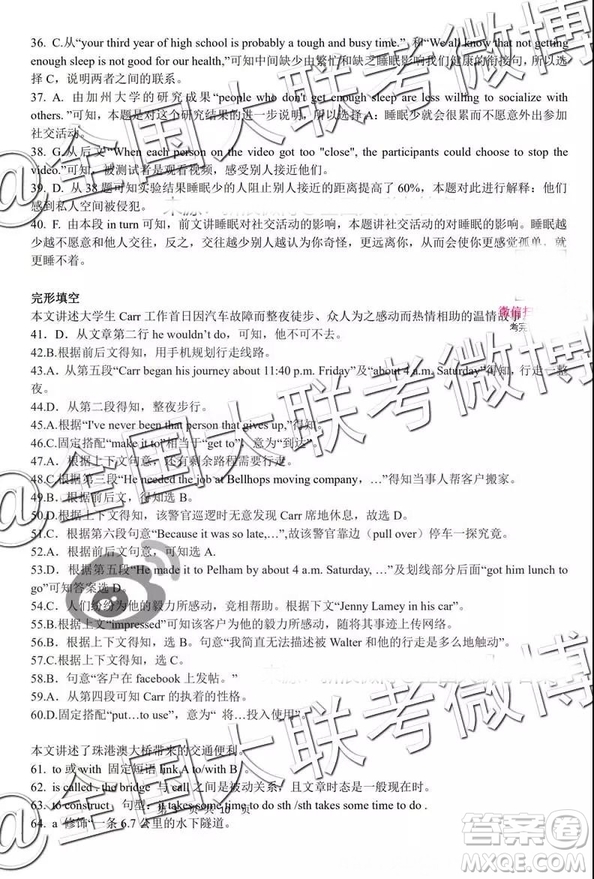 36. C.从“your third year of high school is probably a tough and busy time.”, 和“We all know that not getting
enough sleep is not good for our health,”可知中间缺少由繁忙和缺乏睡眠影响我们健康的衔接句,所以选
择 C，说明两者之间的联系。
37. A. 由加州大学的研究成果“people who don't get enough sleep are less willing to socialize with
others.”可知，本题是对这个研究结果的进一步说明，所以选择A：睡眠少就会很累而不愿意外出参加
社交活动。
38. G.从后文“When each person on the video got too "close", the participants could choose to stop the
video.”可知，被测试者是观看视频，感受别人接近他们。
39. D. 从 38 题可知实验结果睡眠少的人阻止别人接近的距离提高了 60%，本题对此进行解释：他们
感到私人空间被侵犯。
40. F. 由本段 in turn 可知，前文讲睡眠对社交活动的影响，本题讲社交活动的对睡眠的影响。睡眠越
少越不愿意和他人交往，反之，交往越少别人越认为你奇怪，而认为你奇怪会使你更感觉孤单，
更睡不着。
完形填空
本文讲述大学生 Carr 工作首日因汽车故障而整夜徒步、众人为之感动而热情相助的温情故事
微信扫
41．D．从文章第二行 he wouldn’t do，可知，他不可不去。
42.B.根据前后文得知，用手机规划行走线路。
43.A．从第五段“Carr began his journey about 11:40 p.m. Friday”及“about 4 a.m. Saturday”得知，行走一整
夜。
44.D．从第二段得知，整夜步行。
45.A.根据“I've never been that person that gives up,”可知。
46.C.固定搭配“make it to”相当于“get to”；意为“到达”
47.A．根据上下文得知，还有剩余路程需要行走。
48.C.根据第三段“He needed the job at Bellhops moving company，…»得知当事人帮客户搬家。
49.B．根据前后文得知，故选 B。
50.D.根据上下文得知，该警官巡逻时看见 Carr 席地休息，故选 D。
51.C．根据第六段句意“Because it was so late,…”,故该警官靠边（pull over）停车一探究竟。
52.A．根据前后文句意，可知选 A。
53.D．根据第五段“He made it to Pelham by about 4 a.m. Saturday, …”及划线部分句意“got him lunch to
go”可知答案选 D。
54.C．人们纷纷为他的毅力所感动，竞相帮助。根据下文“Jenny Lamey in his car”。
55.D.根据下文“impressed”可知该客户为他的毅力所感动，并将该故事上传网络。
56.B．根据上下文得知，选 B。句意“我简直无法描述被 Walter 和他的行走是多么地触动”。
57.C.根据上下文得知，选 C。
58.B．句意“客户在 facebook 上发帖。”
59.A．从第四段可知 Carr 的执着的性格。
60.D.固定搭配“put…to use”，意为“ 将…投入使用”。
本文讲述了珠港澳大桥带来的交通便利。
61．to 或with 固定短语 link A to/with B 。
62．is called . the bridge 与 call 之间是被动关系，且文章时态是一般现在时。
63．to construct 句型：it takes some time to do sth /sth takes some time to do .
64．a 修饰“一条 6.7 公里的水下隧道。
@全国大联考微博
答案圈
MXQE.COM